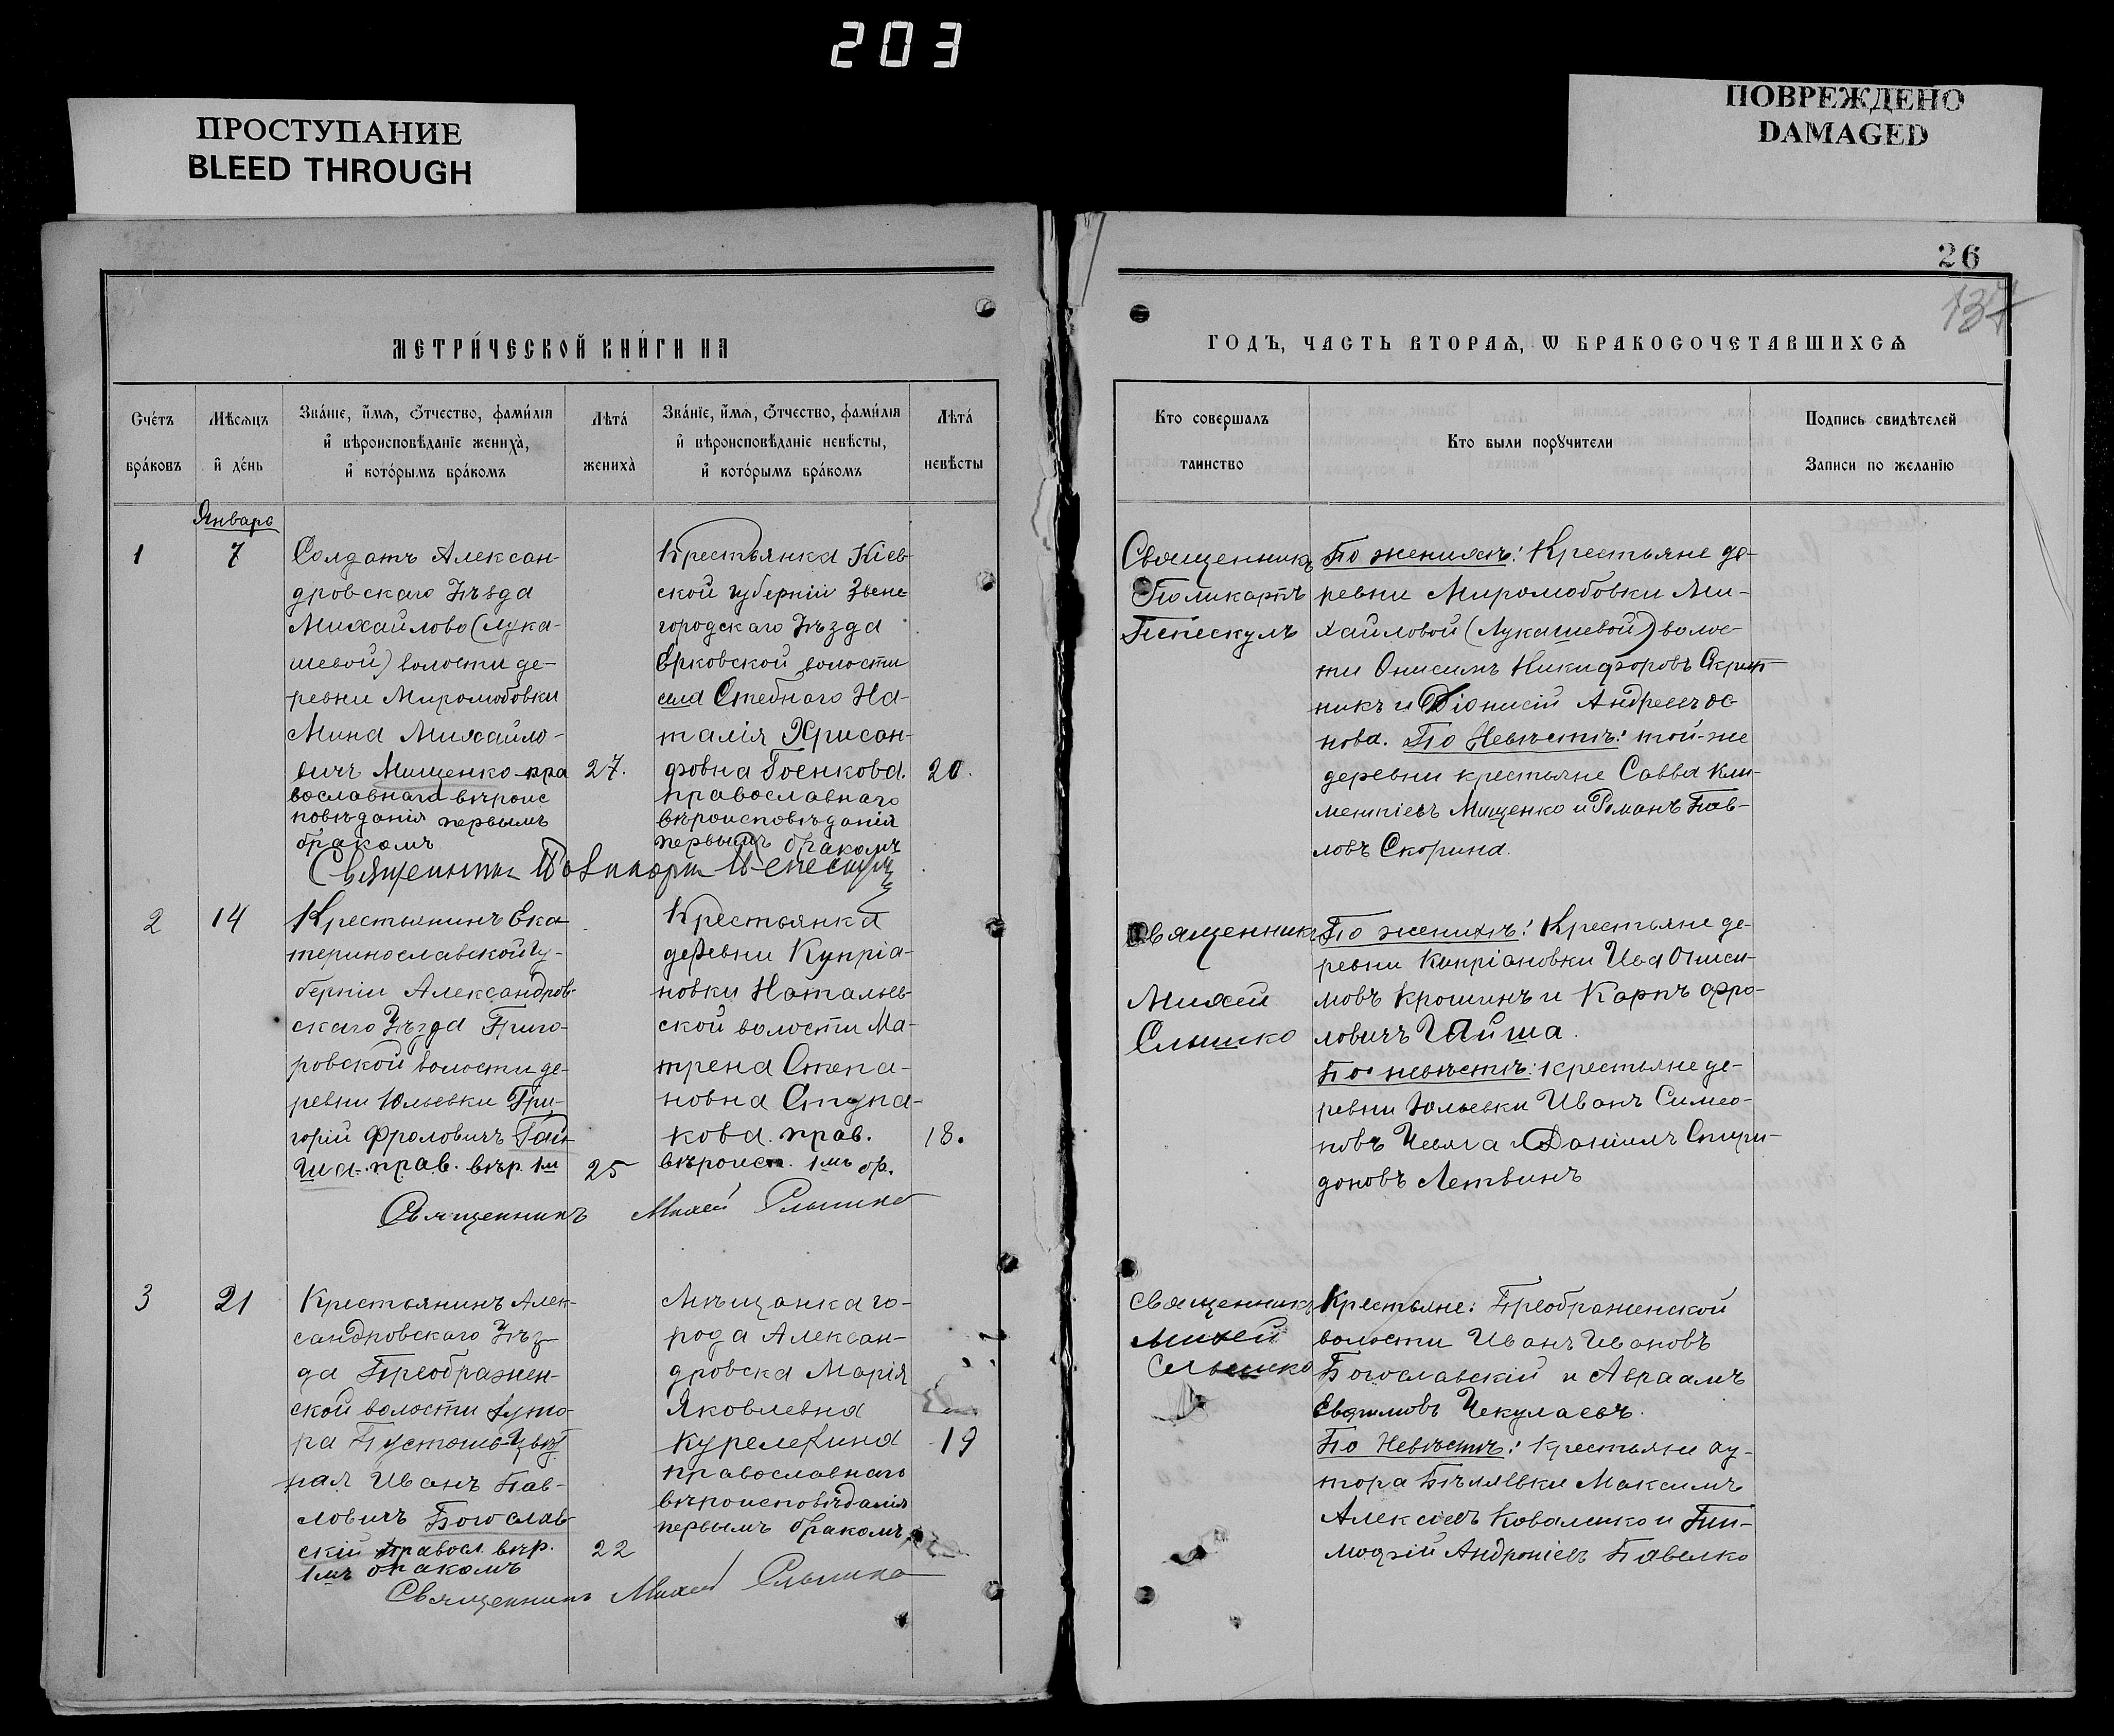 203
ПРОСТУПАНИЕ
BLEED THROUGH
ПОВРЕЖДЕНО
DAMAGED
26
137
МЕТРИ́ЧЕСКОЙ КНИ́ГИ НА
Сче́тъ
бра́ковъ
Мѣсѧцъ
и҆ де́нь
Зва́нїе, и҆́мѧ, ѻ҆́тчество, фами́лїѧ
и҆ вѣроисповѣ́данїе жениха̀,
и҆ кото́рымъ бра́комъ
Лѣта̀
жениха̀
Зва́нїе, и҆́мѧ, ѻ҆́тчество, фами́лїѧ
и҆ вѣроисповѣ́данїе невѣ́сты,
и҆ кото́рымъ бра́комъ
Лѣта̀
невѣ́сты
Январь
1
7
Солдатъ Алексан-
дровскаго Уѣзда
Михайлово (Лука-
шевой) волости де-
ревни Миролюбовки
Мина Михайло-
вичъ Мищенко пра
вославнаго вѣроис
повѣданія первымъ
бракомъ
27.
Крестьянка Кіев-
ской губерніи Звени-
городскаго Уѣзда
Ерковской волости
села Стебнаго На-
талія Хрисан-
фовна Гоенкова.
православнаго
вѣроисповѣданія
первымъ бракомъ
20.
Священникъ Поликарпъ Пепескулъ
2
14
Крестьянинъ Ека-
теринославской гу-
берніи Александров-
скаго Уѣзда Григо-
ровской волости де-
ревни Юльевки Гри-
горій Фроловичъ Гай-
ша. прав. вѣр. 1м
25
Крестьянка
деревни Купріа-
новки Натальев-
ской волости Ма-
трена Степа-
новна Ступа-
кова. прав.
вѣроисп. 1мъ бр.
18.
Священникъ Михей Слышко
3
21
Крестьянинъ Алек-
сандровскаго Уѣз-
да Преображен-
ской волости Хуто-
ра
ная Иванъ Пав-
ловичъ Богослав-
скій правосл. вѣр.
1мъ бракомъ
22
Мѣщанка го-
рода Алексан-
дровска Марія
Яковлевна
Курелехина
православнаго
вѣроисповѣданія
первымъ бракомъ
19
Священникъ Михей Слышко
ГОДЪ, ЧАСТЬ ВТОРАѦ, Ѡ БРАКОСОЧЕТАВШИХСѦ
Кто совершалъ
таинство
Кто были порꙋчители
Подпись свидѣтелей
Записи по желанїю
Священникъ
Поликарпъ
Пепескулъ
По женихѣ: Крестьяне де-
ревни Миролюбовки Ми-
хайловой (Лукашевой) волос-
ти Онисимъ Никифоровъ Скрып-
никъ и Діонисій Андреевъ Ос-
нова. По Невѣстѣ: той-же
деревни крестьяне Савва Кли-
ментіевъ Мищенко и Романъ Пав-
ловъ Скорина.
Священникъ
Михей
Слышко
По женихѣ: Крестьяне де-
ревни Купріановки ИваОниси-
мовъ Крошинъ и Карпъ Фро-
ловичъ Гайша.
По невѣстѣ: крестьяне де-
ревни Юльевки Иванъ Симео-
новъ Чевяга и Даніилъ Спири-
доновъ Летвинъ
Священникъ
Михей
Слышко
Крестьяне: Преображенской
волости Иванъ Ивановъ
Богославскій и Авраамъ
Евфимовъ Чекулаевъ.
По Невѣстѣ: Крестьяне ху-
тора Бѣляевки Максимъ
Алексѣевъ Коваленко и Ти-
мофій Андроніевъ Павелко